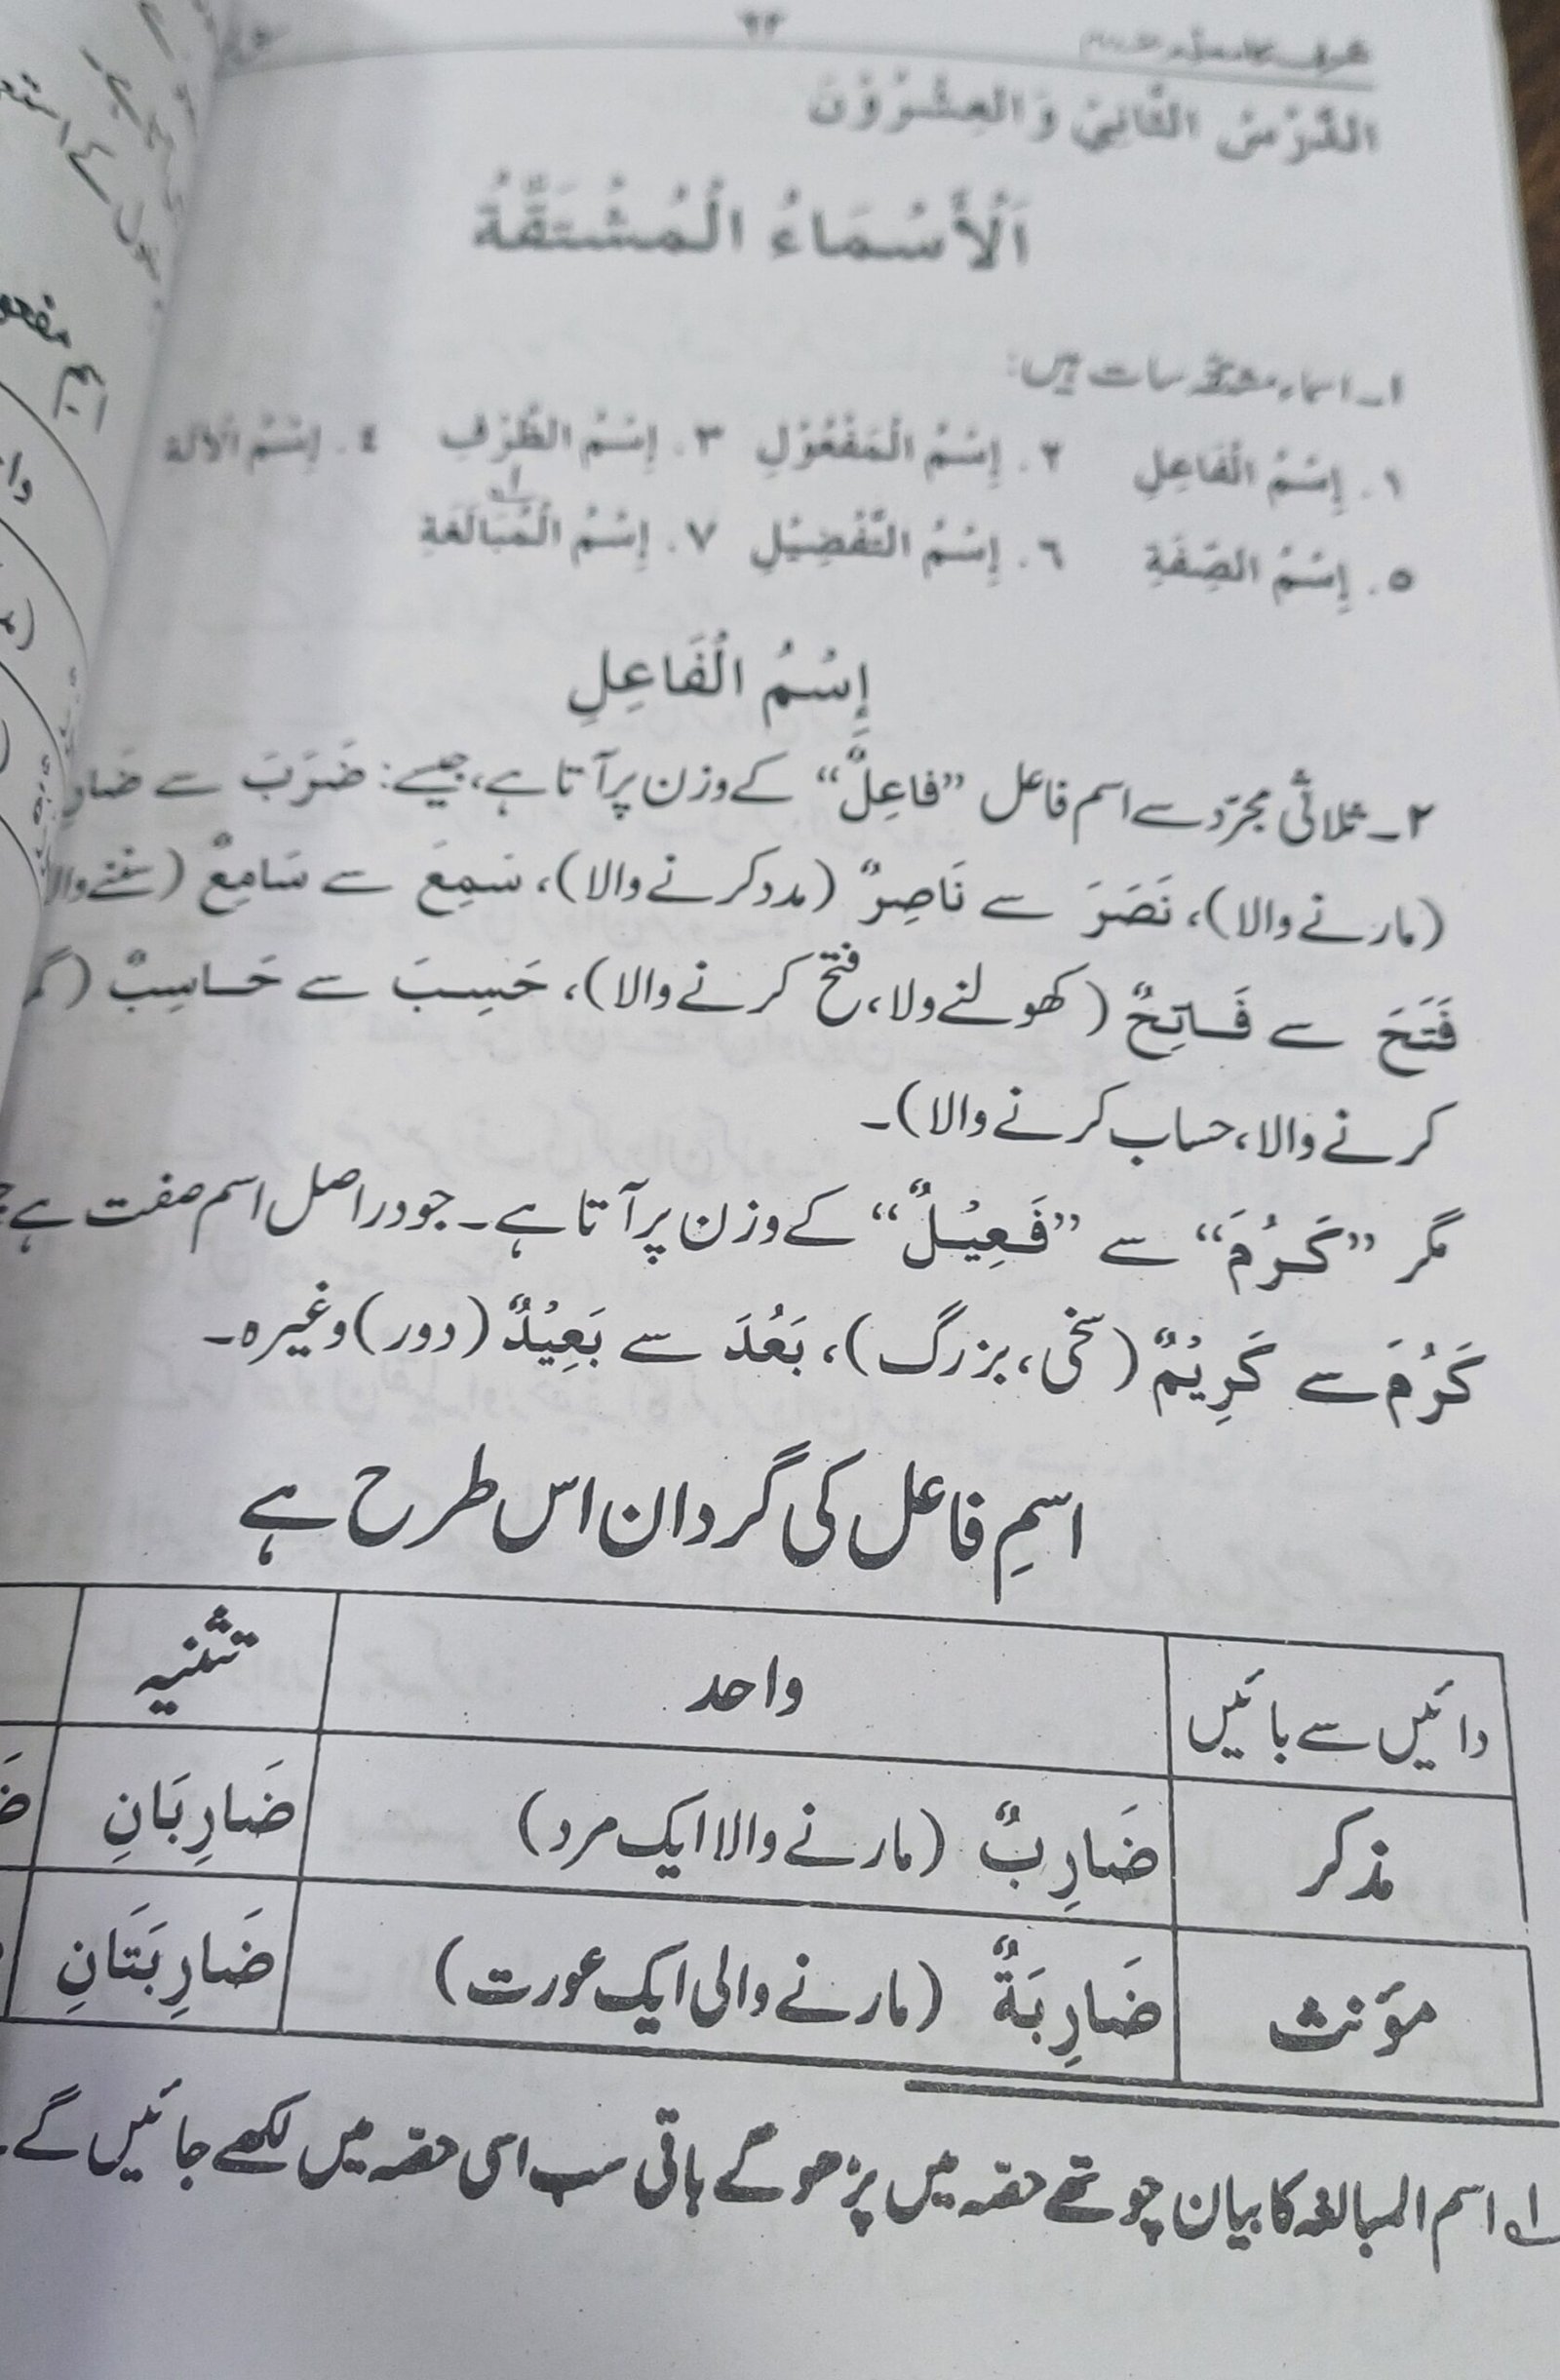 ٦٣
الدَّرْسُ الثَّانِيْ وَالْعِشْرُوْنَ
اَلْأَسْمَاءُ الْمُشْتَقَّةُ
۱۔ اسماء مشتقہ سات ہیں:
١. إِسْمُ الْفَاعِلِ ٢. إِسْمُ الْمَفْعُوْلِ ٣. إِسْمُ الظَّرْفِ ٤. إِسْمُ الْاٰلَة
٥. إِسْمُ الصِّفَةِ ٦. إِسْمُ التَّفْضِيْلِ ٧. إِسْمُ الْمُبَالَغَةِ ؂۱
إِسْمُ الْفَاعِلِ
۲۔ ثلاثی مجرّد سے اسم فاعل ”فاعِلٌ“ کے وزن پر آتا ہے، جیسے: ضَرَبَ سے ضَارِ
(مارنے والا)، نَصَرَ سے نَاصِرٌ (مدد کرنے والا)، سَمِعَ سے سَامِعٌ (سننے والا
فَتَحَ سے فَاتِحٌ (کھولنے ولا، فتح کرنے والا)، حَسِبَ سے حَاسِبٌ (گم
کرنے والا، حساب کرنے والا)۔
مگر ”كَرُمَ“ سے ”فَعِيْلٌ“ کے وزن پر آتا ہے۔ جو دراصل اسم صفت ہے
كَرُمَ سے كَرِيْمٌ (سخی، بزرگ)، بَعُدَ سے بَعِيْدٌ (دور) وغیرہ۔
اسمِ فاعل کی گردان اس طرح ہے
دائیں سے بائیں واحد تثنیہ
مذکر ضَارِبٌ (مارنے والا ایک مرد) ضَارِبَانِ
مؤنث ضَارِبَةٌ (مارنے والی ایک عورت) ضَارِبَتَانِ
؂۱ اسم المبالغہ کا بیان چوتھے حصّہ میں پڑھو گے باقی سب اسی حصّہ میں لکھے جائیں گے۔